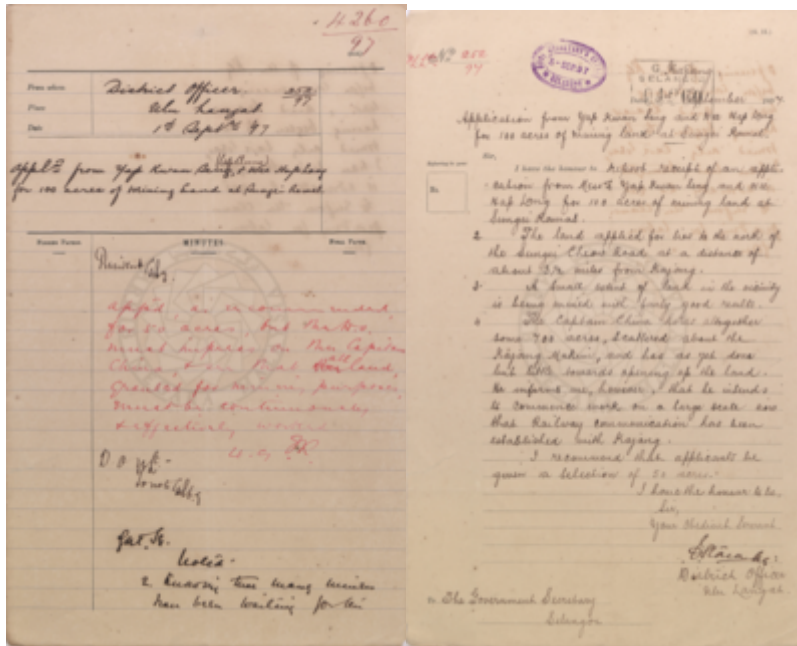 4260
97
From whom
District Officer
252
97
Place
Ulu Langat
Date
1st Septbr 97
Appln from Yap Kwan Seng, & Wee Hap Long
for 100 acres of mining land at Sungei
MINUTES
Resident
appd. as recommended,
for 50 acres, but the D.O.
must impress on the Capitan
China, that all land,
granted for mining purposes
must be continuously
& effectively worked
D O U.L.
to note
Govt. Sec.
Noted.
2. Knowing how many miners
have been waiting for
252
97
September
Application from Yap Kwan Seng and Wee Hap Long
for 100 acres of mining land at Sungei
Sir,
I have the honour to report receipt of an appli-
cation from Messrs Yap Kwan Seng and Wee
Hap Long for 100 acres of mining land at
Sungei
2. The land applied for lies to the north of
the Sungei Cheow Road at a distance of
about 3½ miles from Kajang.
3. A small extent of land in the vicinity
is being mined with fairly good results.
4. The Captain China holds altogether
some 700 acres, scattered about the
Kajang Mukim, and has as yet done
but little towards opening up the land.
He informs me, however, that he intends
to commence work on a large scale now
that Railway communication has been
established with Kajang.
I recommend that applicants be
given a selection of 50 acres.
I have the honour to be,
Sir,
Your Obedient Servant,
District Officer
Ulu Langat.
The Government Secretary
Selangor